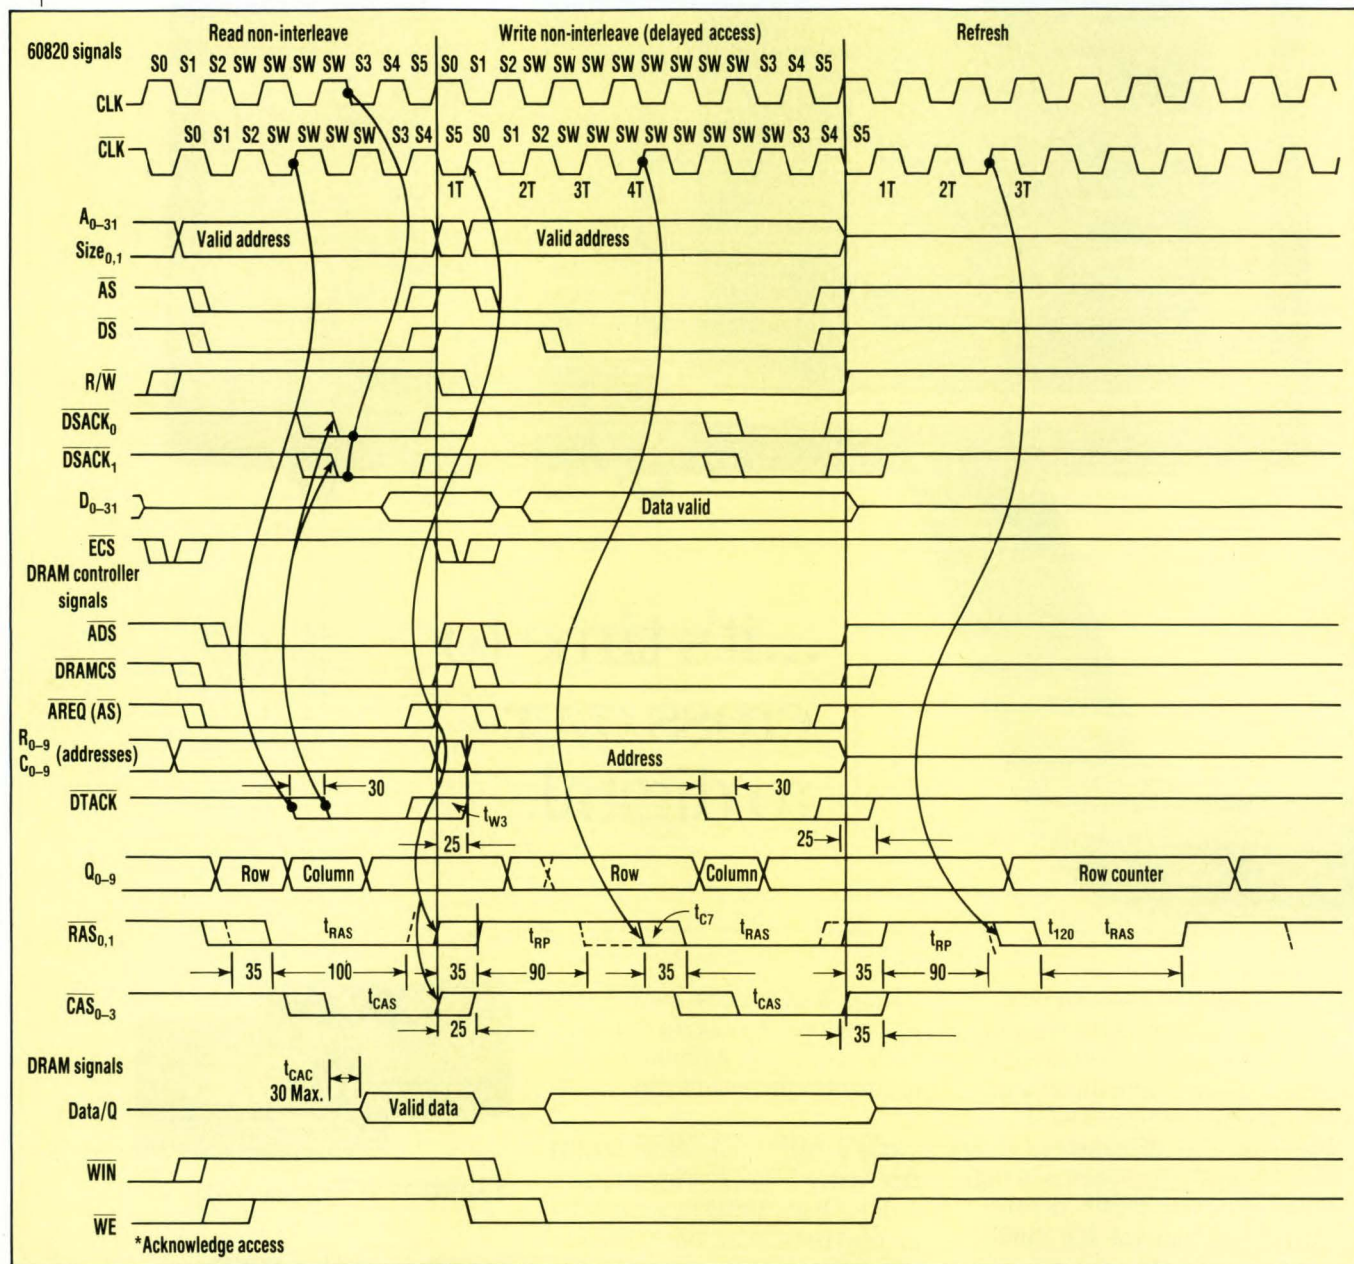 Read non-interleave Write non-interleave (delayed access) Refresh
60820 signals
S0 S1 S2 SW SW SW SW S3 S4 S5 S0 S1 S2 SW SW SW SW SW SW SW SW S3 S4 S5
CLK
S0 S1 S2 SW SW SW SW S3 S4 S5 S0 S1 S2 SW SW SW SW SW SW SW SW S3 S4 S5
CLK
1T 2T 3T 4T 1T 2T 3T
A0–31
Size0,1
Valid address Valid address
AS
DS
R/W
DSACK0
DSACK1
D0–31 Data valid
ECS
DRAM controller
signals
ADS
DRAMCS
AREQ (AS)
R0–9
C0–9
(addresses) Address
DTACK 30 tW3 30
25 25
Q0–9 Row Column Row Column Row counter
RAS0,1 tRAS tRP tC7 tRAS tRP t120 tRAS
35 100 35 90 35 35 90
CAS0–3 tCAS tCAS
25 35
DRAM signals
tCAC
30 Max.
Data/Q Valid data
WIN
WE
*Acknowledge access